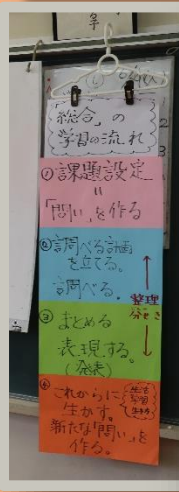 「総合」の
学習の流れ
①課題設定
〃
「問い」を作る
②調べる計画
を立てる。
調べる。
整理
分せき
③まとめる
表現する。
(発表)
④これからに
生かす。
生活
学習
新たな「問い」を
作る。